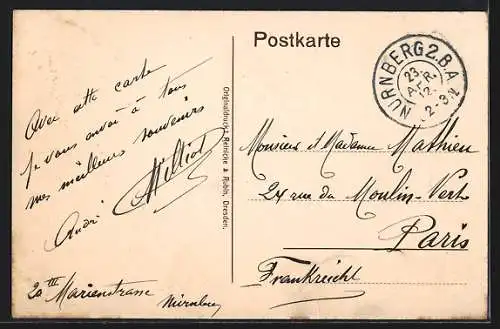 Postkarte
NÜRNBERG 2. B.A.
23.
APR.
12.
2-3 N
Avec cette carte
je vous envoi à tous
mes meilleurs souvenirs
André
20 III Marienstrasse
Nürnberg
Originaldruck v. Reinicke & Rubin, Dresden.
Monsieur et Madame Mathieu
24 rue du Moulin-Vert
Paris
Frankreich